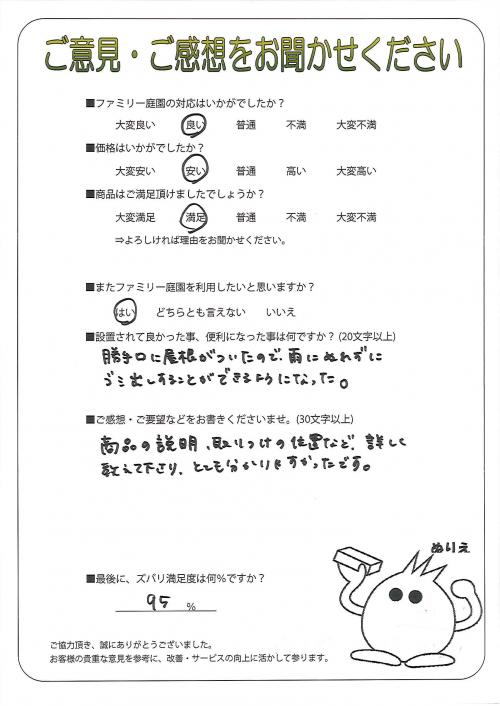 ご意見・ご感想をお聞かせください
■ファミリー庭園の対応はいかがでしたか？
大変良い 良い 普通 不満 大変不満
■価格はいかがでしたか？
大変安い 安い 普通 高い 大変高い
■商品はご満足頂けましたでしょうか？
大変満足 満足 普通 不満 大変不満
⇒よろしければ理由をお聞かせください。
■またファミリー庭園を利用したいと思いますか？
はい どちらとも言えない いいえ
■設置されて良かった事、便利になった事は何ですか？(20文字以上)
勝手口に屋根がついたので、雨にぬれずに
ゴミ出しすることができるようになった。
■ご感想・ご要望などをお書きくださいませ。(30文字以上)
商品の説明、取りつけの位置など、詳しく
教えて下さり、とても分かりやすかったです。
ぬりえ
■最後に、ズバリ満足度は何％ですか？
95 %
ご協力頂き、誠にありがとうございました。
お客様の貴重な意見を参考に、改善・サービスの向上に活かして参ります。